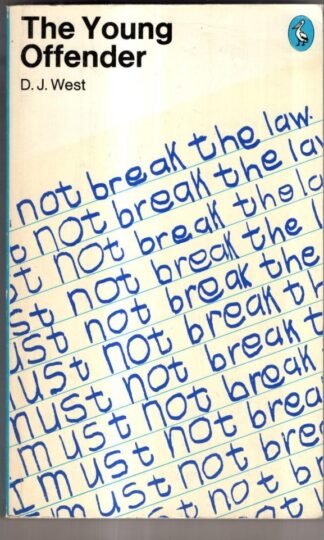 The Young
Offender
D. J. West
not break the law.
t not break the la
t not break the la
st not break the l
ust not break the
ust not break th
must not break t
must not break
I must not brea
I must not bre
must not b
not